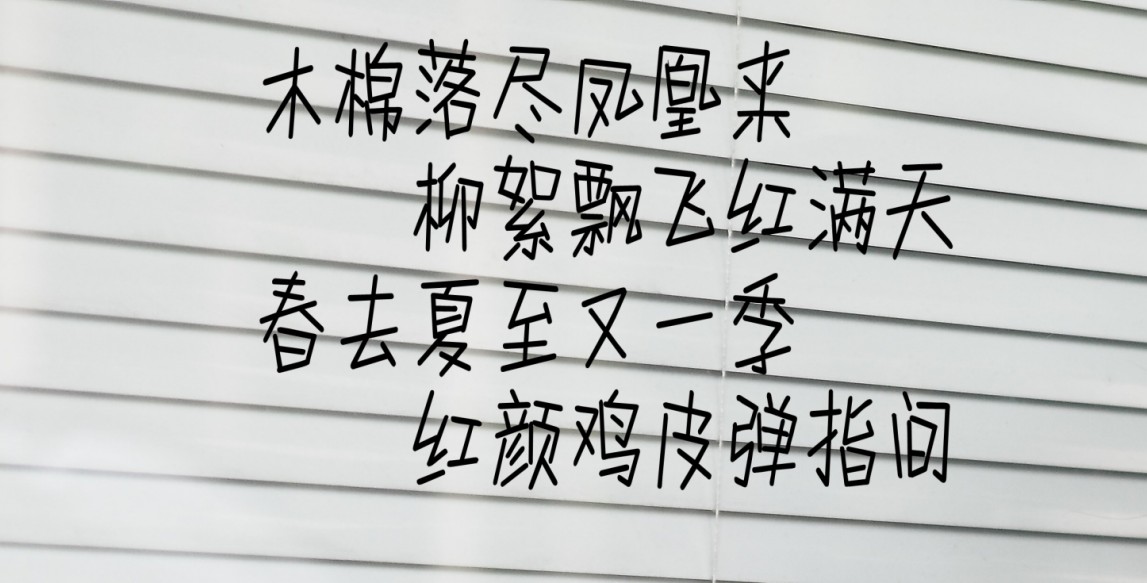 木棉落尽凤凰来
柳絮飘飞红满天
春去夏至又一季
红颜鸡皮弹指间